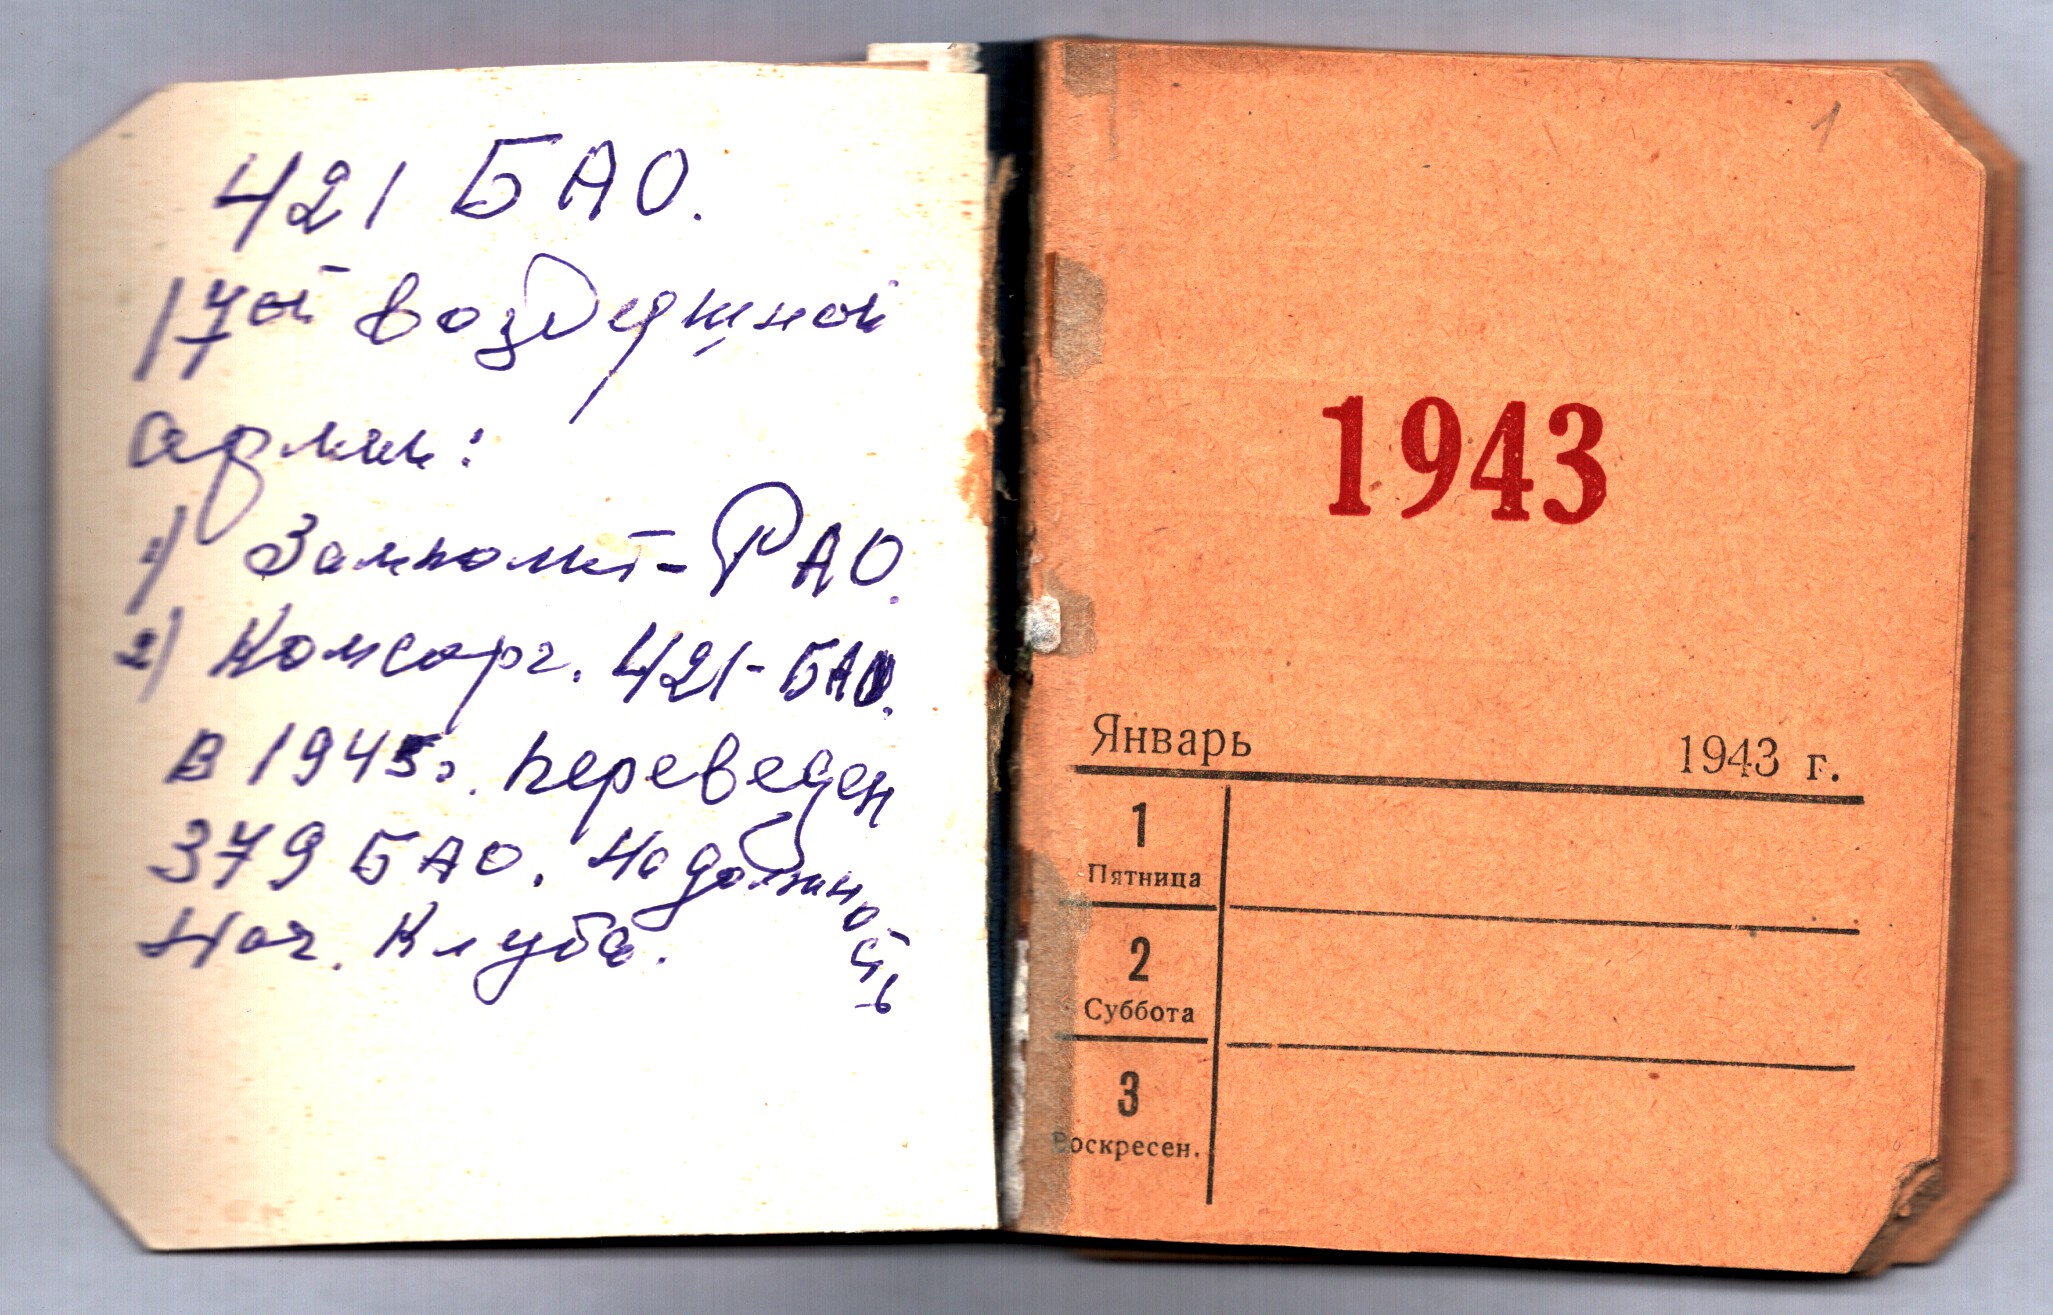 421 БАО.
17ой воздушной
армии:
1) Замполит-РАО.
2) Комсорг. 421-БАО.
в 1945г. переведен
379 БАО. На должность
Нач. Клуба.
1
1943
Январь 1943 г.
1
Пятница
2
Суббота
3
Воскресен.